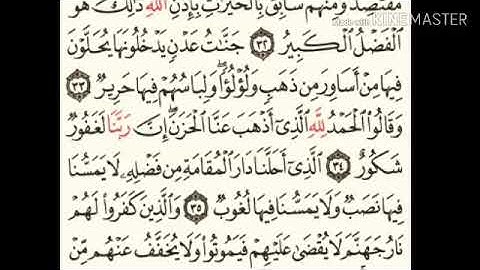 مُّقْتَصِدٌ وَمِنْهُمْ سَابِقٌۢ بِٱلْخَيْرَٰتِ بِإِذْنِ ٱللَّهِ ذَٰلِكَ هُوَ
Made with KINEMASTER
ٱلْفَضْلُ ٱلْكَبِيرُ ٣٢ جَنَّٰتُ عَدْنٍ يَدْخُلُونَهَا يُحَلَّوْنَ
فِيهَا مِنْ أَسَاوِرَ مِن ذَهَبٍ وَلُؤْلُؤًا ۖ وَلِبَاسُهُمْ فِيهَا حَرِيرٌ ٣٣
وَقَالُوا۟ ٱلْحَمْدُ لِلَّهِ ٱلَّذِىٓ أَذْهَبَ عَنَّا ٱلْحَزَنَ ۖ إِنَّ رَبَّنَا لَغَفُورٌ
شَكُورٌ ٣٤ ٱلَّذِىٓ أَحَلَّنَا دَارَ ٱلْمُقَامَةِ مِن فَضْلِهِۦ لَا يَمَسُّنَا
فِيهَا نَصَبٌ وَلَا يَمَسُّنَا فِيهَا لُغُوبٌ ٣٥ وَٱلَّذِينَ كَفَرُوا۟ لَهُمْ
نَارُ جَهَنَّمَ لَا يُقْضَىٰ عَلَيْهِمْ فَيَمُوتُوا۟ وَلَا يُخَفَّفُ عَنْهُم مِّنْ